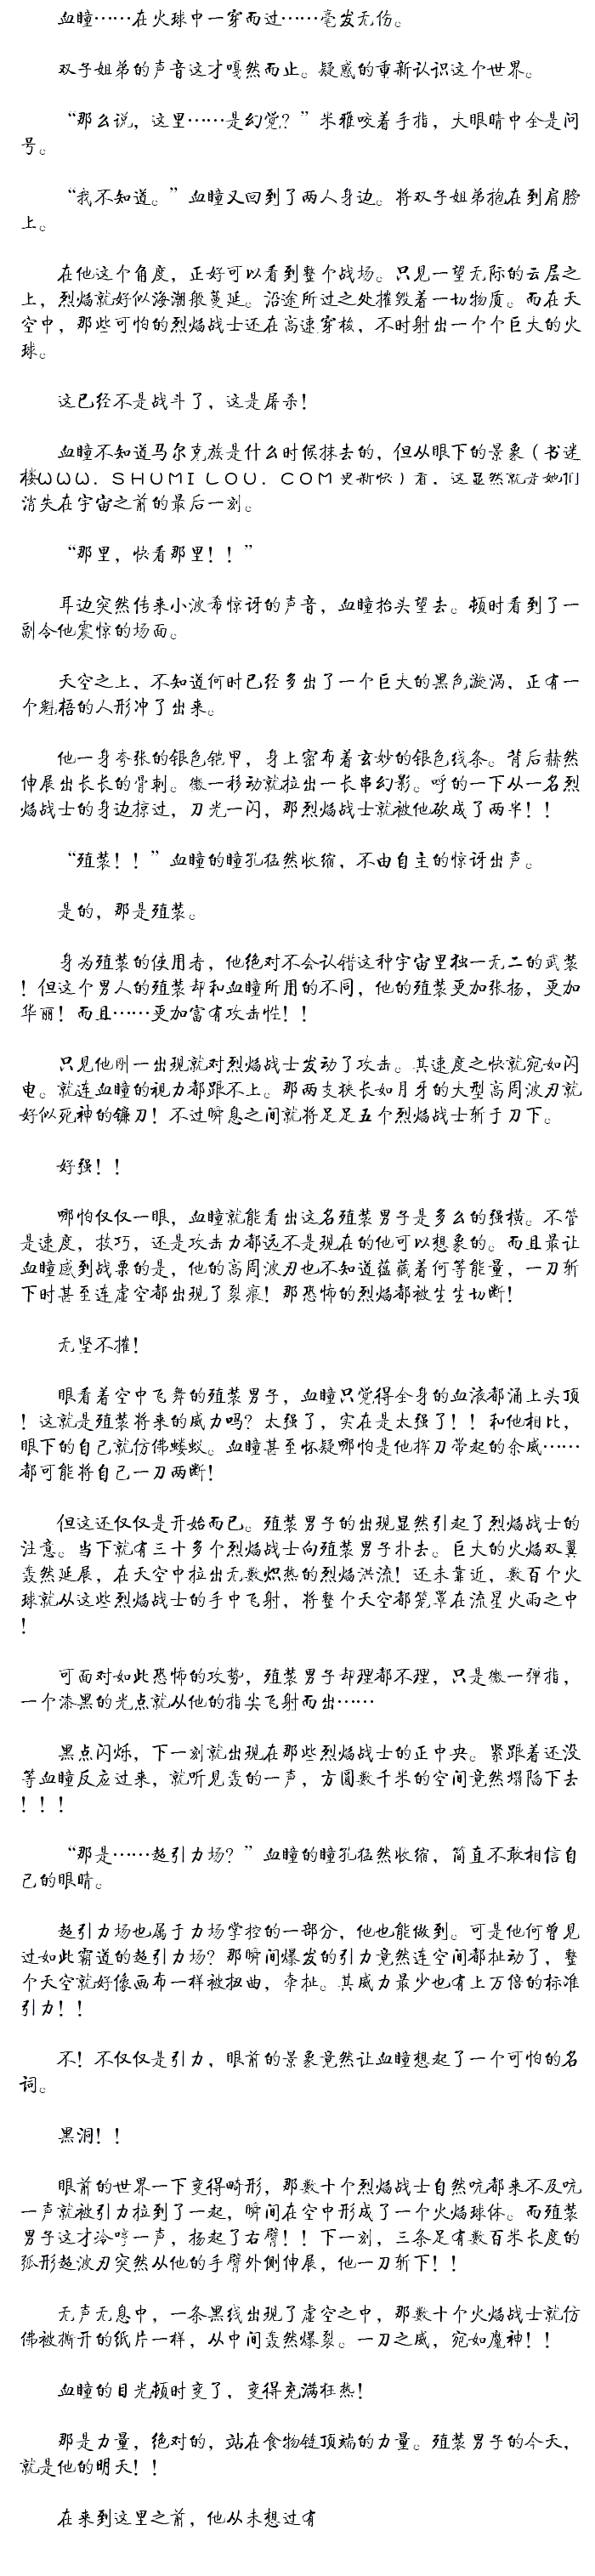 血瞳……在火球中一穿而过……毫发无伤。
双子姐弟的声音这才嘎然而止。疑惑的重新认识这个世界。
“那么说，这里……是幻觉？”米雅咬着手指，大眼睛中全是问
号。
“我不知道。”血瞳又回到了两人身边。将双子姐弟抱在到肩膀
上。
在他这个角度，正好可以看到整个战场。只见一望无际的云层之
上，烈焰就好似海潮般蔓延。沿途所过之处摧毁着一切物质。而在天
空中，那些可怕的烈焰战士还在高速穿梭，不时射出一个个巨大的火
球。
这已经不是战斗了，这是屠杀！
血瞳不知道马尔克族是什么时候抹去的，但从眼下的景象（书迷
楼WWW.SHUMILOU.COM更新快）看，这显然就是她们
消失在宇宙之前的最后一刻。
“那里，快看那里！！”
耳边突然传来小波希惊讶的声音，血瞳抬头望去。顿时看到了一
副令他震惊的场面。
天空之上，不知道何时已经多出了一个巨大的黑色漩涡，正有一
个魁梧的人形冲了出来。
他一身夸张的银色铠甲，身上密布着玄妙的银色线条。背后赫然
伸展出长长的骨刺。微一移动就拉出一长串幻影。呼的一下从一名烈
焰战士的身边掠过，刀光一闪，那烈焰战士就被他砍成了两半！！
“殖装！！”血瞳的瞳孔猛然收缩，不由自主的惊讶出声。
是的，那是殖装。
身为殖装的使用者，他绝对不会认错这种宇宙里独一无二的武装
！但这个男人的殖装却和血瞳所用的不同，他的殖装更加张扬，更加
华丽！而且……更加富有攻击性！！
只见他刚一出现就对烈焰战士发动了攻击。其速度之快就宛如闪
电。就连血瞳的视力都跟不上。那两支狭长如月牙的大型高周波刃就
好似死神的镰刀！不过瞬息之间就将足足五个烈焰战士斩于刀下。
好强！！
哪怕仅仅一眼，血瞳就能看出这名殖装男子是多么的强横。不管
是速度，技巧，还是攻击力都远不是现在的他可以想象的。而且最让
血瞳感到战栗的是，他的高周波刃也不知道蕴藏着何等能量，一刀斩
下时甚至连虚空都出现了裂痕！那恐怖的烈焰都被生生切断！
无坚不摧！
眼看着空中飞舞的殖装男子，血瞳只觉得全身的血液都涌上头顶
！这就是殖装将来的威力吗？太强了，实在是太强了！！和他相比，
眼下的自己就仿佛蝼蚁。血瞳甚至怀疑哪怕是他挥刀带起的余威……
都可能将自己一刀两断！
但这还仅仅是开始而已。殖装男子的出现显然引起了烈焰战士的
注意。当下就有三十多个烈焰战士向殖装男子扑去。巨大的火焰双翼
轰然延展，在天空中拉出无数炽热的烈焰洪流！还未靠近，数百个火
球就从这些烈焰战士的手中飞射，将整个天空都笼罩在流星火雨之中
！
可面对如此恐怖的攻势，殖装男子却理都不理，只是微一弹指，
一个漆黑的光点就从他的指尖飞射而出……
黑点闪烁，下一刻就出现在那些烈焰战士的正中央。紧跟着还没
等血瞳反应过来，就听见轰的一声，方圆数千米的空间竟然塌陷下去
！！！
“那是……超引力场？”血瞳的瞳孔猛然收缩，简直不敢相信自
己的眼睛。
超引力场也属于力场掌控的一部分，他也能做到。可是他何曾见
过如此霸道的超引力场？那瞬间爆发的引力竟然连空间都扯动了，整
个天空就好像画布一样被扭曲，牵扯。其威力最少也有上万倍的标准
引力！！
不！不仅仅是引力，眼前的景象竟然让血瞳想起了一个可怕的名
词。
黑洞！！
眼前的世界一下变得畸形，那数十个烈焰战士自然吭都来不及吭
一声就被引力拉到了一起，瞬间在空中形成了一个火焰球体。而殖装
男子这才冷哼一声，扬起了右臂！！下一刻，三条足有数百米长度的
弧形超波刃突然从他的手臂外侧伸展，他一刀斩下！！
无声无息中，一条黑线出现了虚空之中，那数十个火焰战士就仿
佛被撕开的纸片一样，从中间轰然爆裂。一刀之威，宛如魔神！！
血瞳的目光顿时变了，变得充满狂热！
那是力量，绝对的，站在食物链顶端的力量。殖装男子的今天，
就是他的明天！！
在来到这里之前，他从未想过有